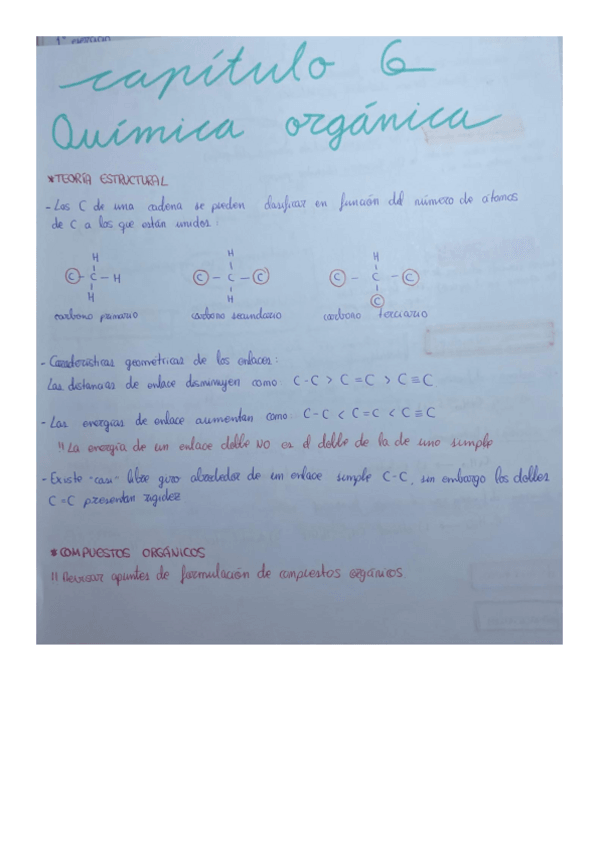 capítulo 6
Química orgánica
*TEORÍA ESTRUCTURAL
- Los C de una cadena se pueden clasificar en función del número de átomos
de C a los que están unidos:
H H H
C - C - H C - C - C C - C - C
H H C
carbono primario carbono secundario carbono terciario
- Características geométricas de los enlaces:
Las distancias de enlace disminuyen como C-C > C=C > C≡C
- Las energías de enlace aumentan como: C-C < C=C < C≡C
!! La energía de un enlace doble NO es el doble de la de uno simple
- Existe -casi- libre giro alrededor de un enlace simple C-C, sin embargo los dobles
C=C presentan rigidez
*COMPUESTOS ORGÁNICOS
!! Revisar apuntes de formulación de compuestos orgánicos